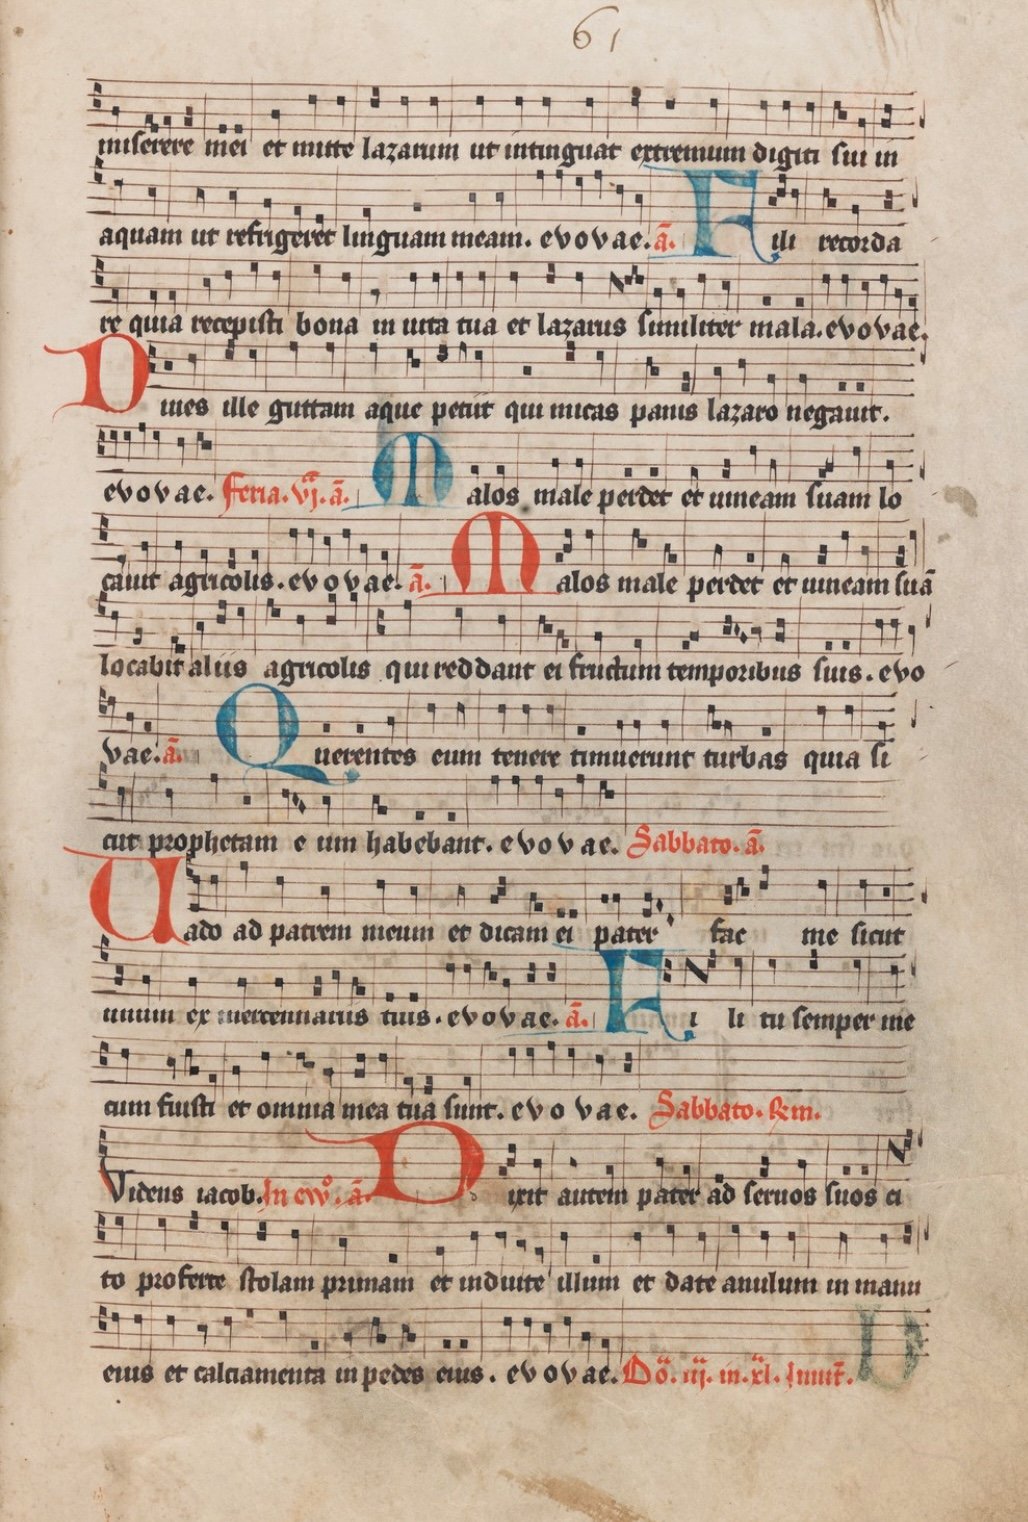 61
miserere mei et mitte lazarum ut intinguat extremum digiti sui in
aquam ut refrigeret linguam meam. evovae. ā. Fili recorda
re quia recepisti bona in vita tua et lazarus similiter mala. evovae.
Dives ille guttam aque petiit qui micas panis lazaro negavit.
evovae. Feria. vj. ā. Malos male perdet et vineam suam lo
cavit agricolis. evovae. ā. Malos male perdet et vineam suā
locabit aliis agricolis qui reddant ei fructum temporibus suis. evo
vae. ā. Querentes eum tenere timuerunt turbas quia si
cut prophetam eum habebant. evovae. Sabbato. ā.
Vado ad patrem meum et dicam ei pater fac me sicut
unum ex mercennariis tuis. evovae. ā. Fili tu semper me
cum fuisti et omnia mea tua sunt. evovae. Sabbato. Rm.
Videns iacob. In ewº. ā. Dixit autem pater ad servos suos ci
to proferte stolam primam et induite illum et date anulum in manu
eius et calciamenta in pedes eius. evovae. Dō. iij. in. xl. Invit̄.